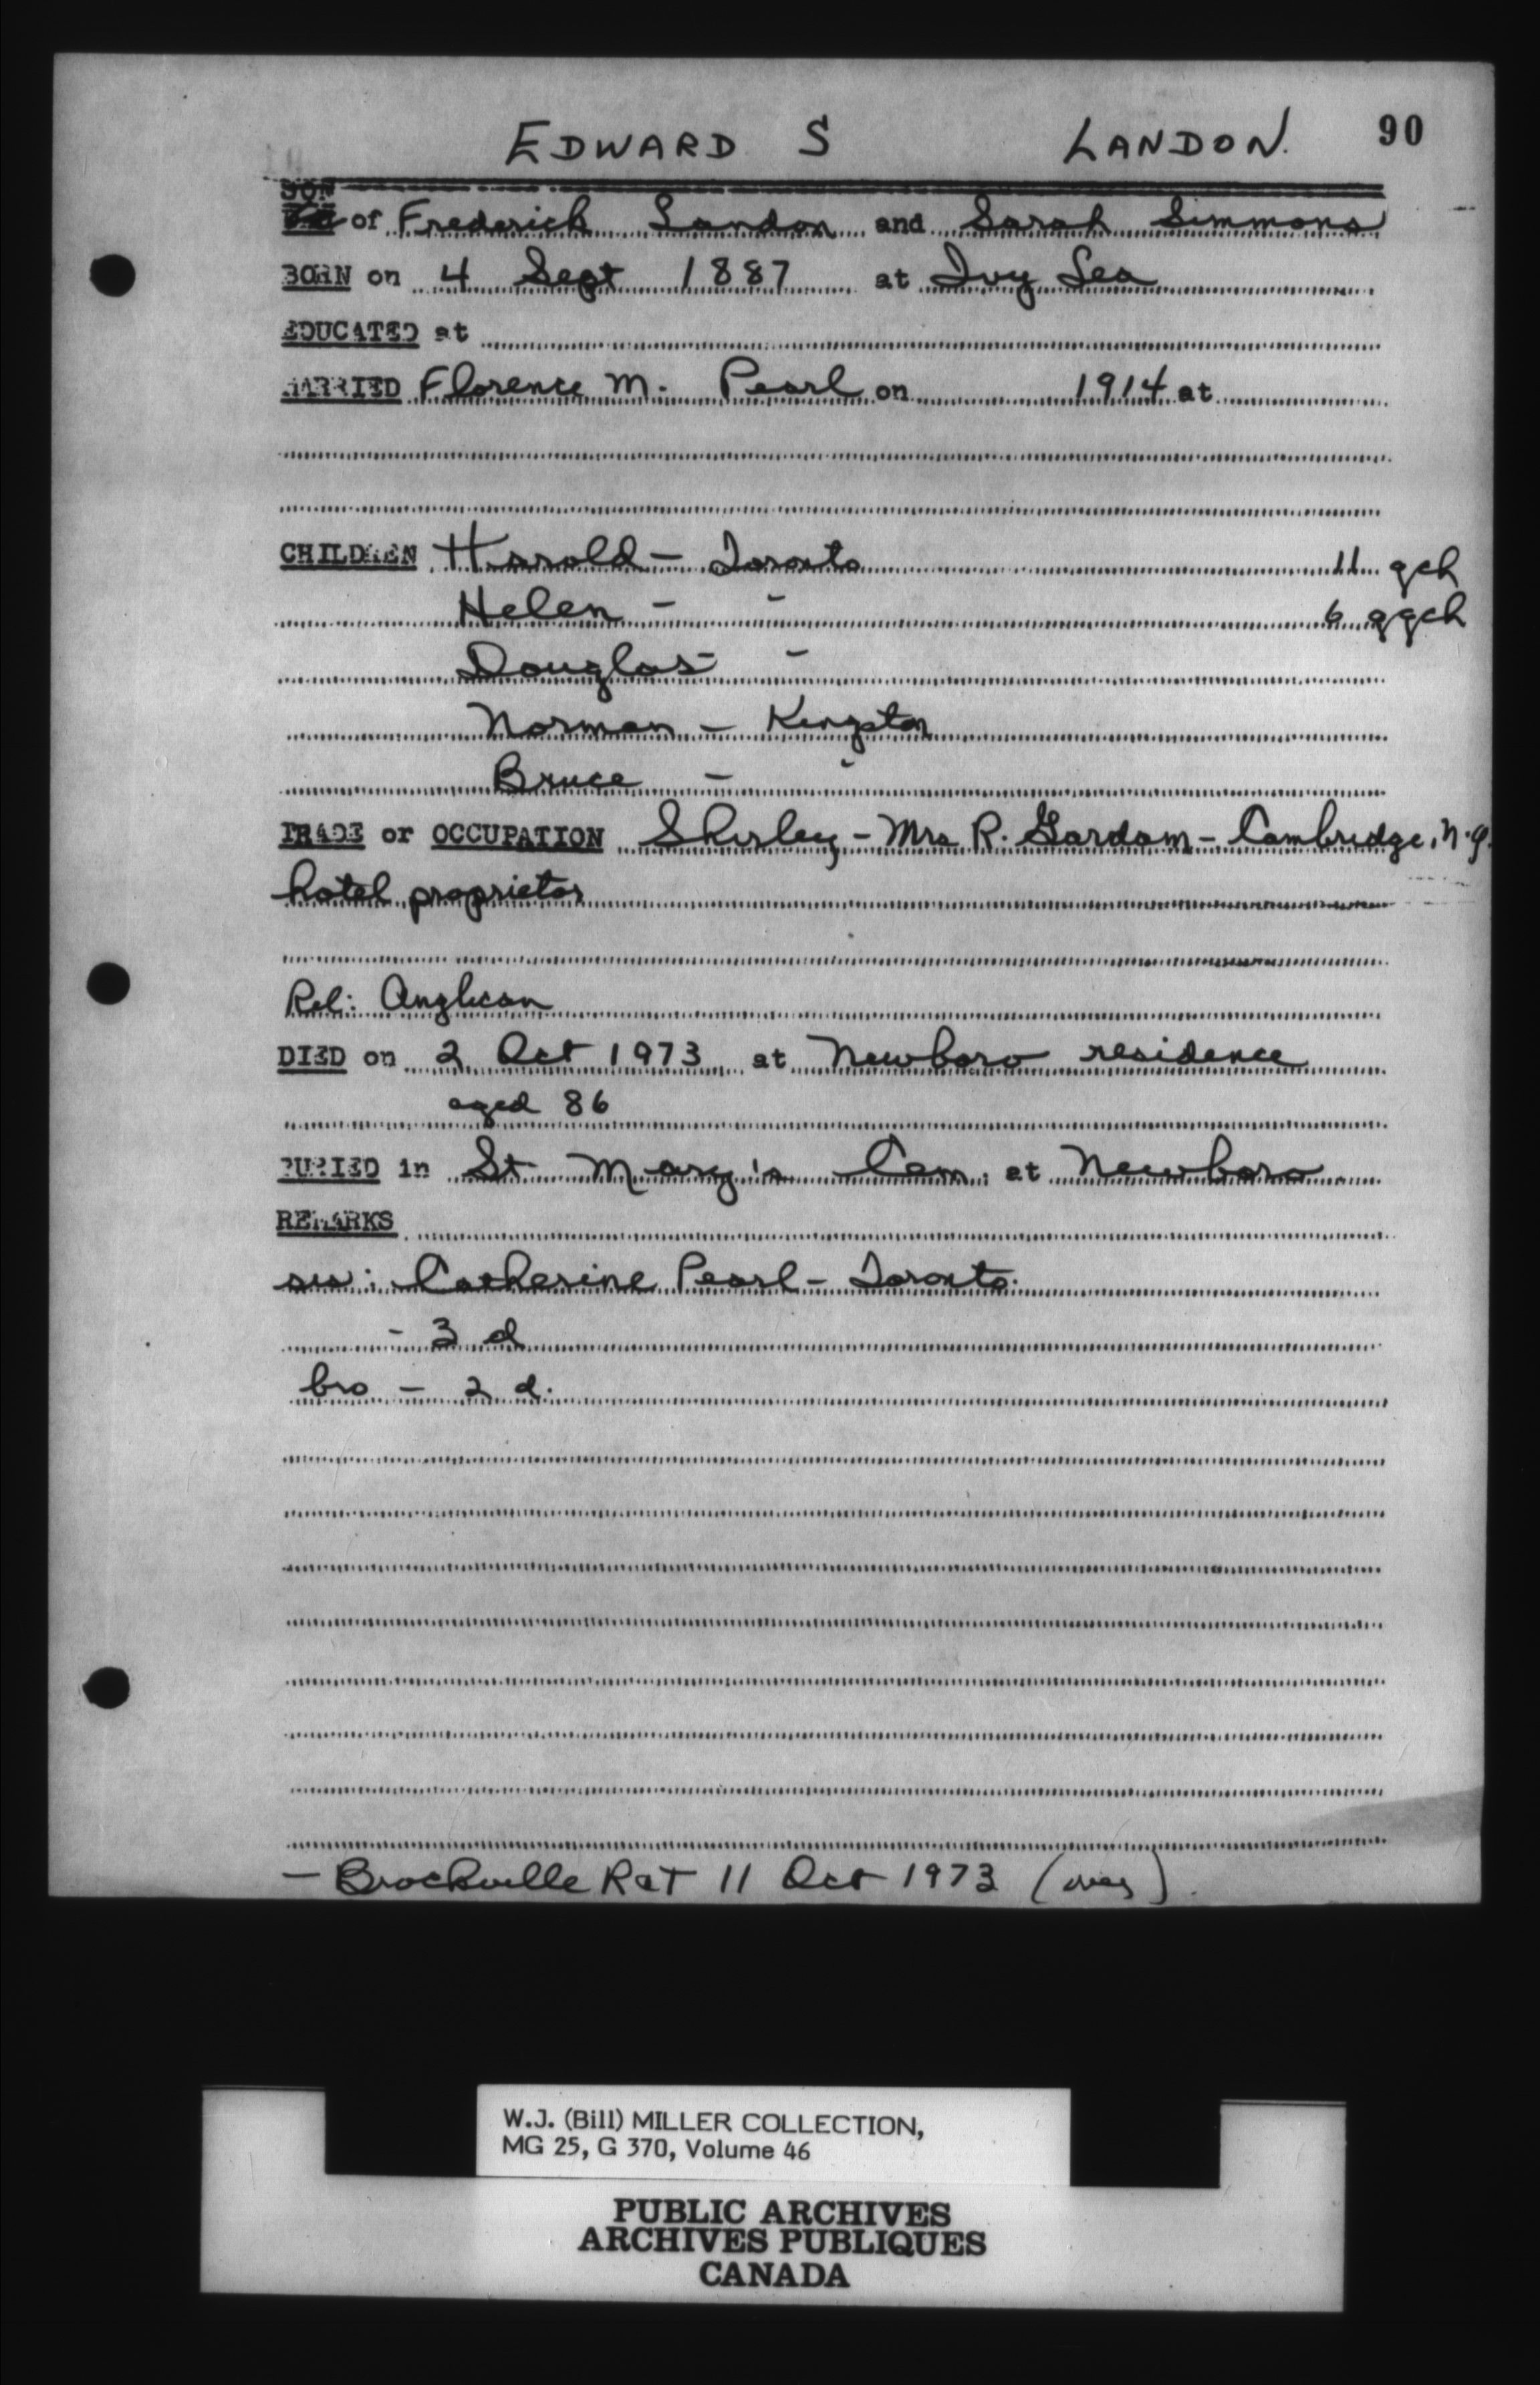 EDWARD S LANDON. 90
SON
of Frederick Landon and Sarah Simmons
BORN on 4 Sept 1887 at Ivy Lea
EDUCATED at
MARRIED Florence M. Pearl on 1914 at
CHILDREN Harold - Toronto 11 gch
Helen - - 6 ggch
Douglas - -
Norman - Kingston
Bruce - -
TRADE or OCCUPATION Shirley - Mrs R. Gardam - Cambridge, N.Y.
hotel proprietor
Rel: Anglican
DIED on 2 Oct 1973 at Newboro residence
aged 86
BURIED in St Mary's Cem. at Newboro
REMARKS
sis: Catherine Pearl - Toronto.
- 3 d
bro - 2 d.
- Brockville R&T 11 Oct 1973 (over)
W.J. (Bill) MILLER COLLECTION,
MG 25, G 370, Volume 46
PUBLIC ARCHIVES
ARCHIVES PUBLIQUES
CANADA